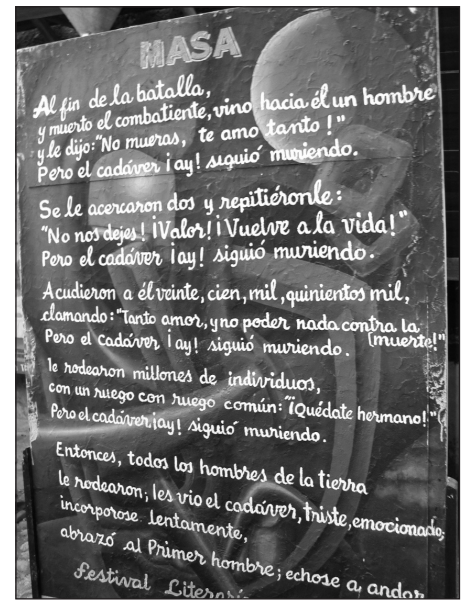 MASA
Al fin de la batalla,
y muerto el combatiente, vino hacia él un hombre
y le dijo: "No mueras, te amo tanto!"
Pero el cadáver ¡ay! siguió muriendo.
Se le acercaron dos y repitiéronle:
"No nos dejes! ¡Valor! ¡Vuelve a la vida!"
Pero el cadáver ¡ay! siguió muriendo.
Acudieron a él veinte, cien, mil, quinientos mil,
clamando: "Tanto amor, y no poder nada contra la
(muerte!"
Pero el cadáver ¡ay! siguió muriendo.
le rodearon millones de individuos,
con un ruego con ruego común: "¡Quédate hermano!"
Pero el cadáver ¡ay! siguió muriendo.
Entonces, todos los hombres de la tierra
le rodearon; les vio el cadáver, triste, emocionado;
incorporose lentamente,
abrazó al Primer hombre; echose a andar
Festival